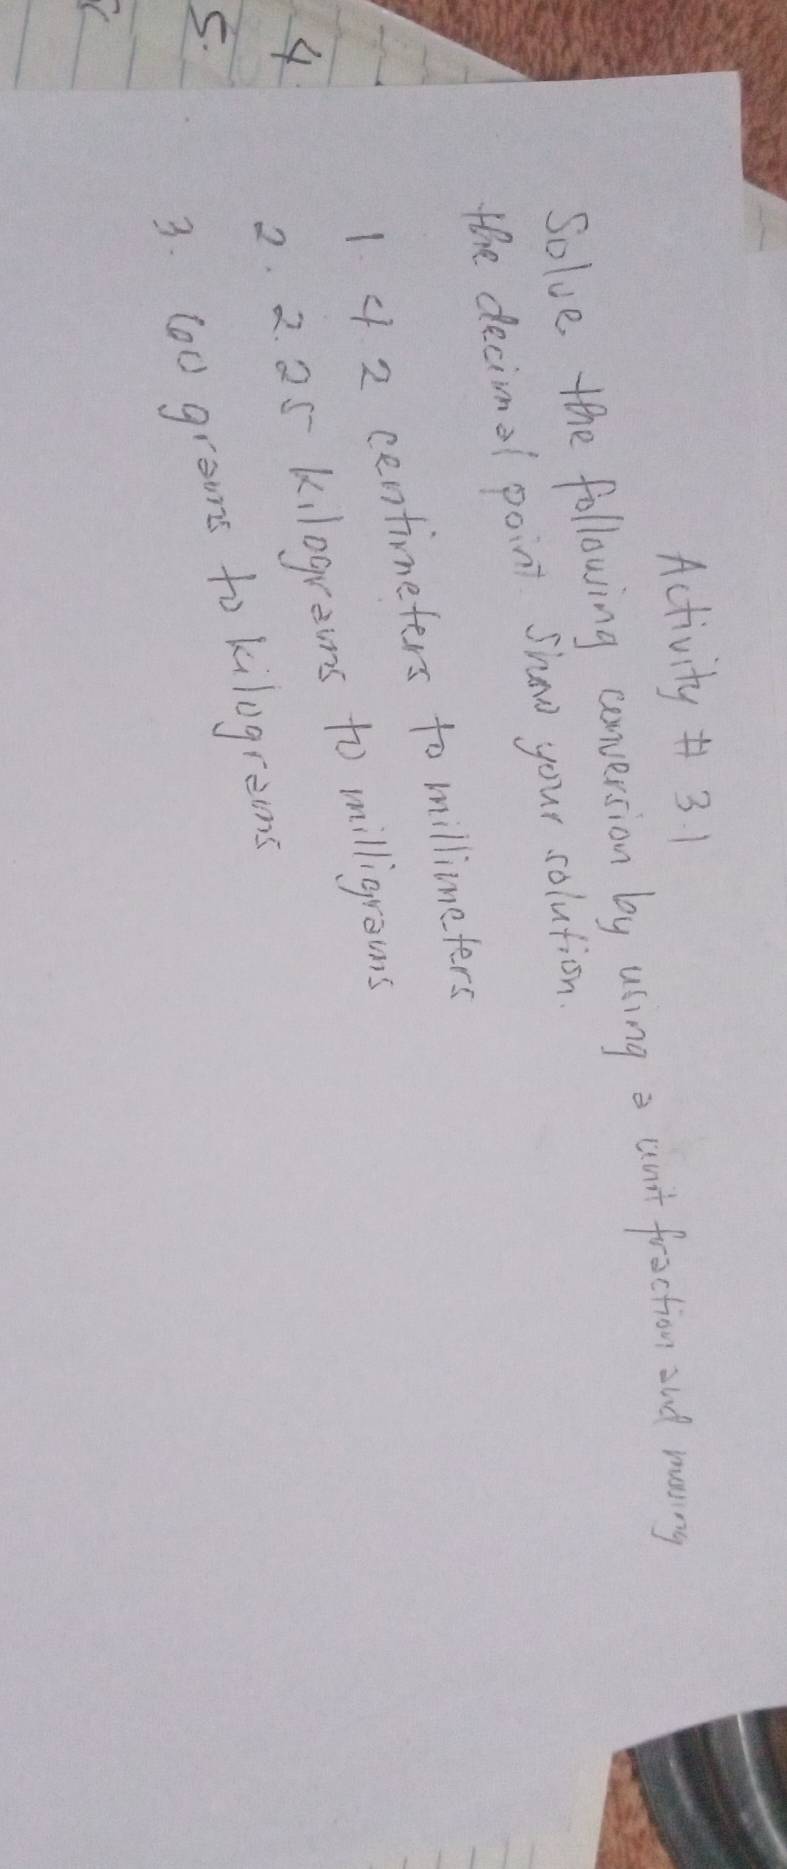 Activity # 3.1
Solve the following conversion by using a unit fraction and moving
the decimal point. Show your solution.
1. 4.2 centimeters to millimeters
2. 2.25 kilograms to milligrams
3. 60 grams to kilograms
4.
5.